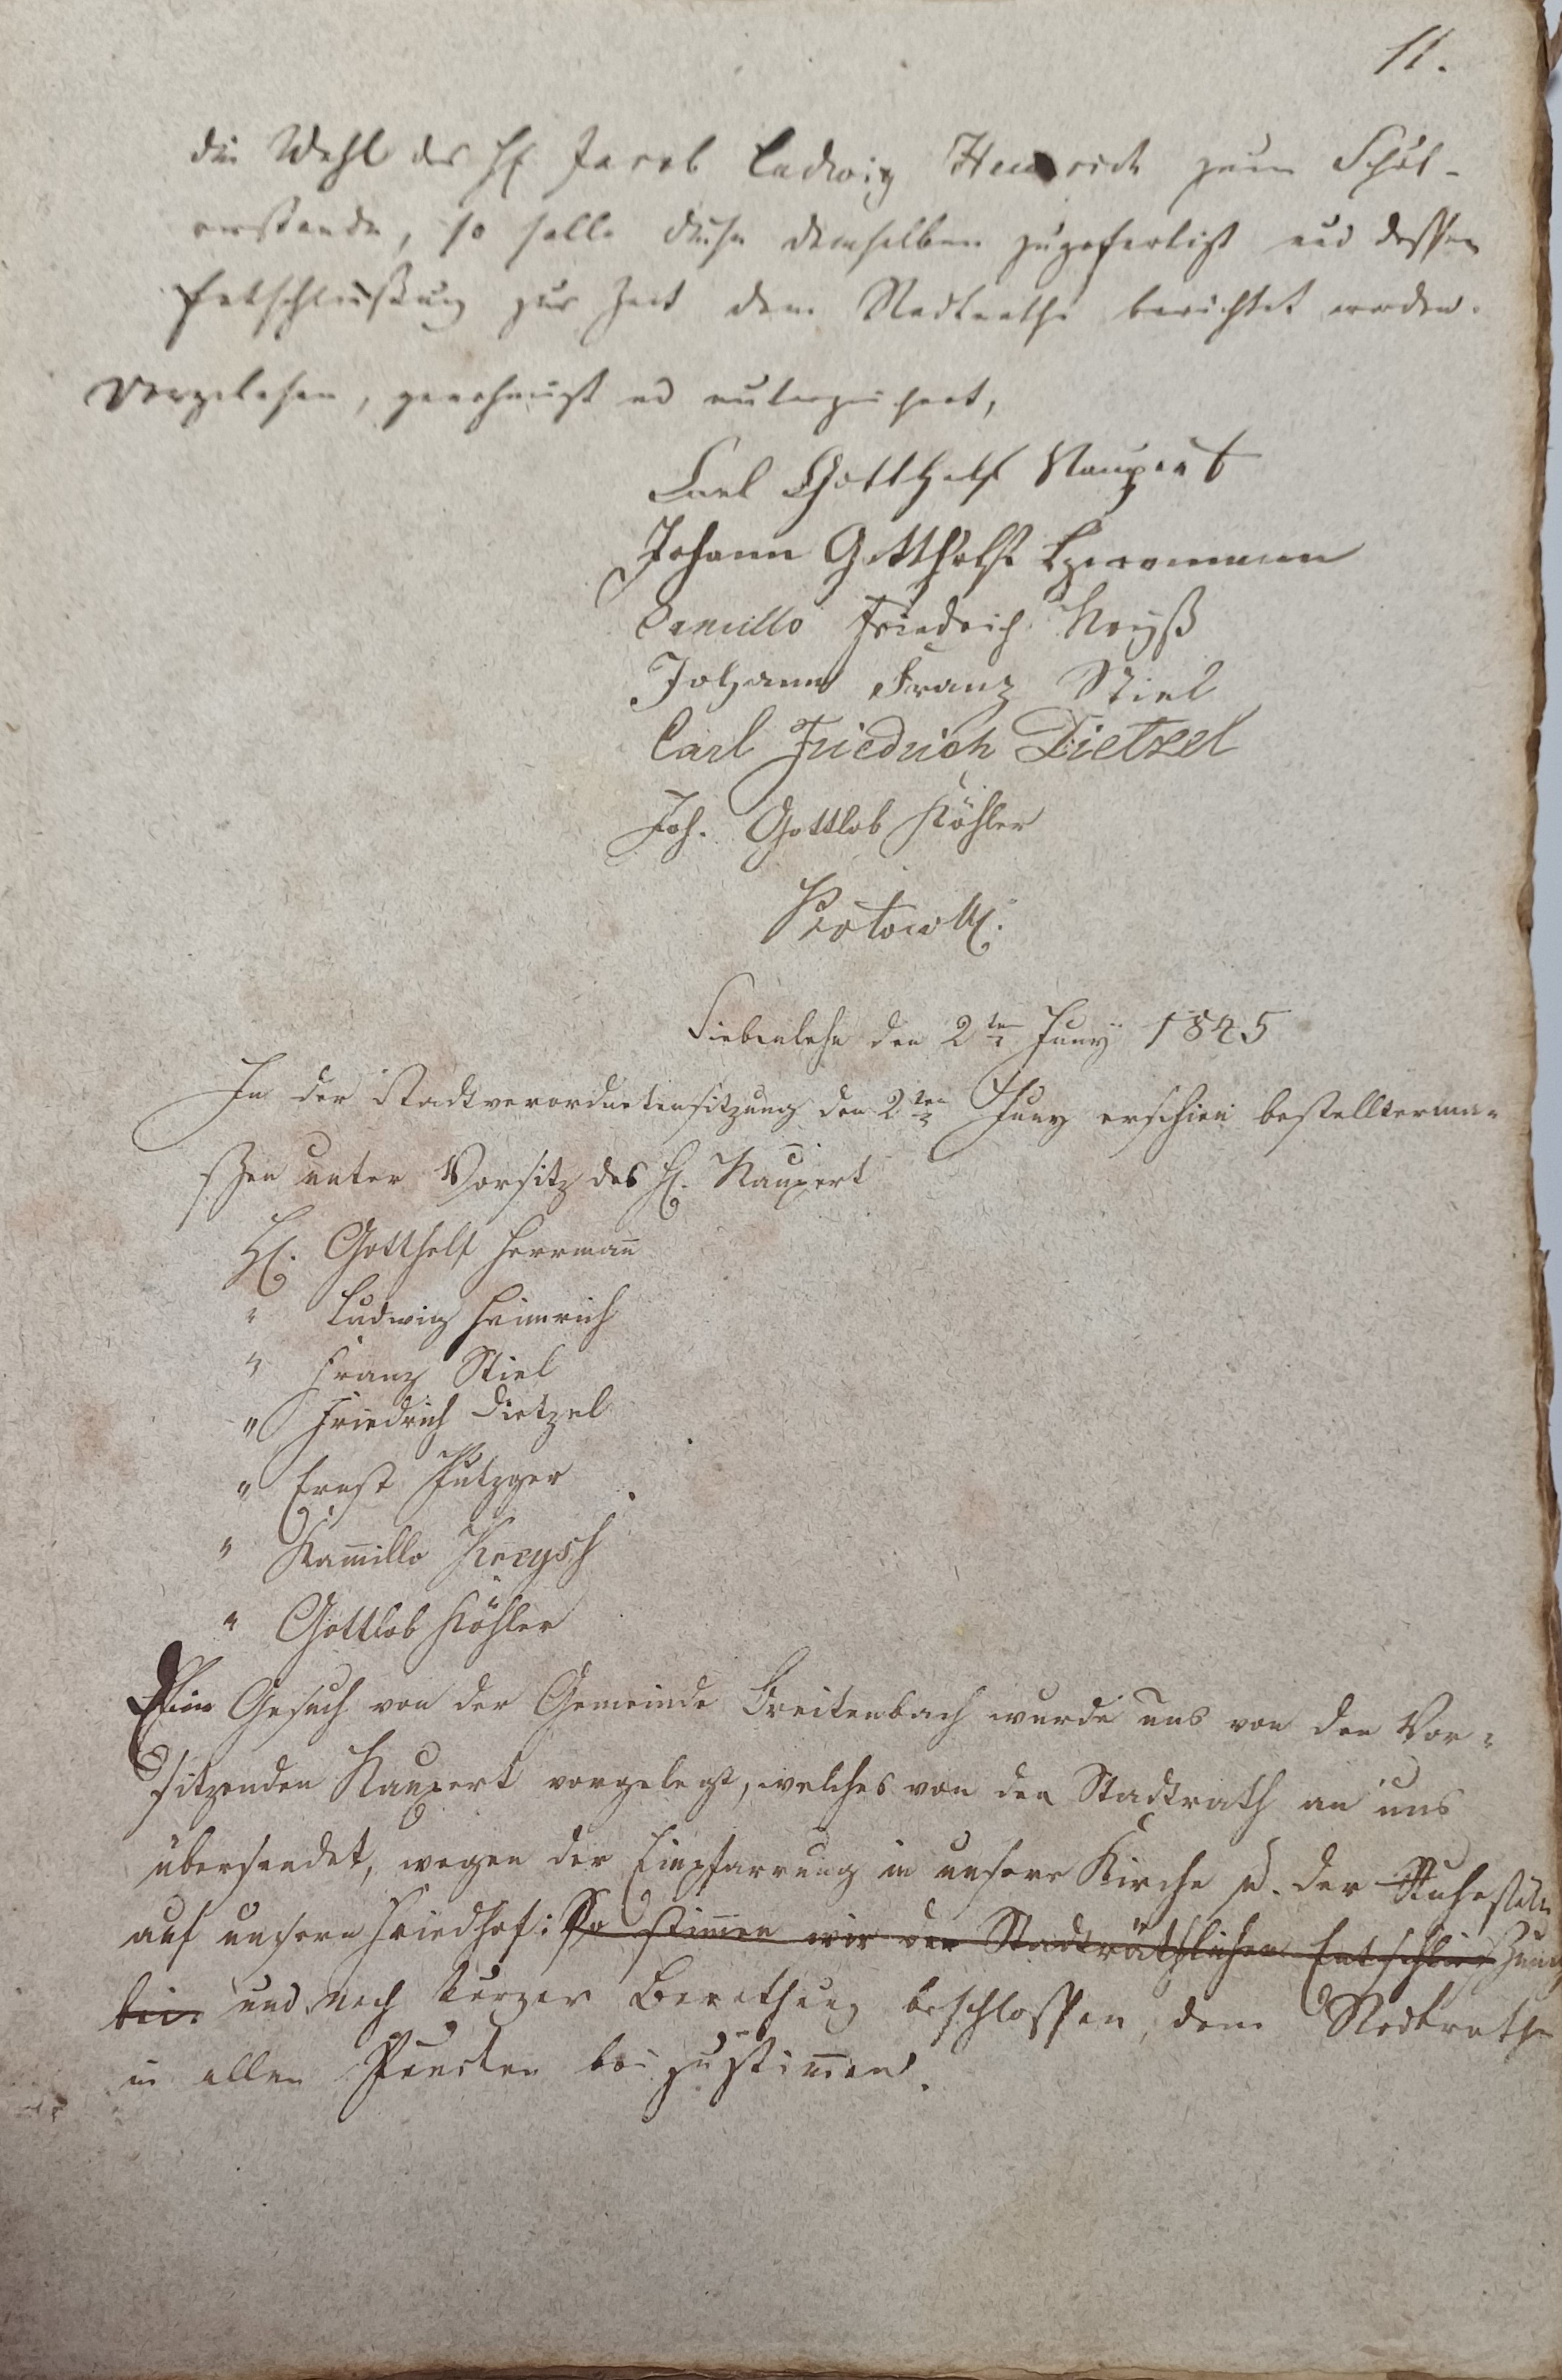 11.
die Wahl des H. Jacob Ludwig Heimrich zum Schul-
vorstande, so solle diese demselben zugefertigt und dessen
Entschließung zur Zeit dem Stadtrathe berichtet werden.
Vorgelesen, genehmigt und unterzeichnet,
Carl Gotthelf Naupert
Johann Gotthelf Herrmann
Camillo Friedrich Kreyß
Johann Franz Stiel
Carl Friedrich Dietzel
Joh. Gottlob Köhler
Protocoll.
Siebenlehn den 2ten Juny 1845
In der Stadtverordnetensitzung den 2ten Juny erschien bestellterma-
ßen unter Vorsitz des H. Naupert
H. Gotthelf Herrmañ
" Ludwig Heimrich
" Franz Stiel
" Friedrich Dietzel
" Ernst Putzger
" Kam̃illo Kreyssß
" Gottlob Köhler
Ein Gesuch von der Gemeinde Breitenbach wurde uns von den Vor-
sitzenden Naupert vorgelegt, welches von den Stadtrath an uns
übersendet, wegen der Einpfarrung in unsere Kirche u. der Ruhestäte
auf unsern Friedhof: So stim̃en wir der Stadträthlichen Entschließung
bei. und nach kurzer Berathung beschlossen, dem Stadtrathe
in allen Puncten beizustim̃en.